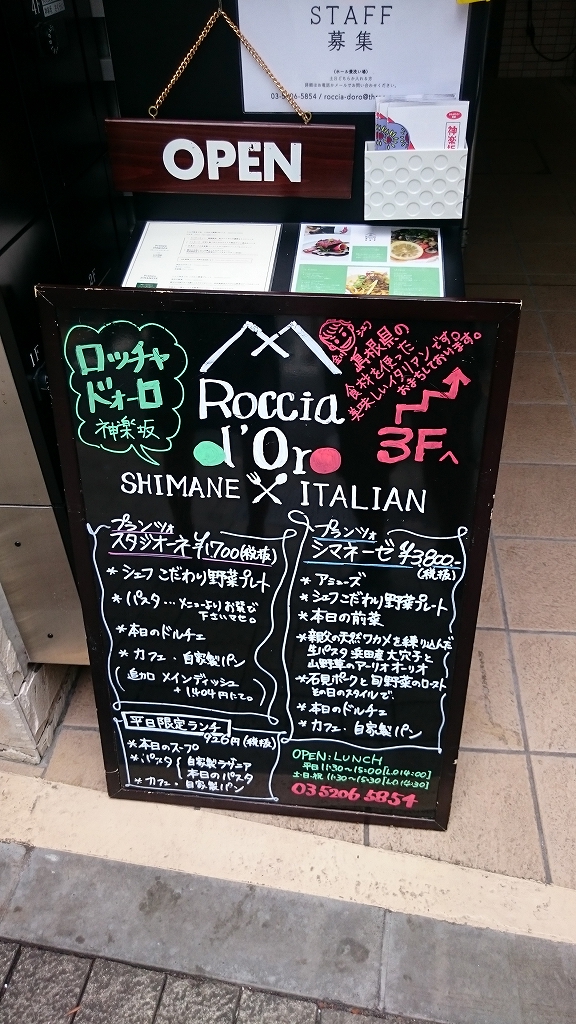 STAFF
募集
(ホール兼洗い場)
03-5206-5854 / roccia-doro@th
神楽坂
OPEN
ロッチャ
ドォーロ
神楽坂
Roccia
d'Oro
SHIMANE ITALIAN
島根県の
食材を使った
美味しいイタリアンです。
おまちしております。
3Fへ
プランツォ
スタジオーネ ¥1700(税抜)
* シェフこだわり野菜プレート
* パスタ…メニューよりお選び
下さいマセ。
* 本日のドルチェ
* カフェ・自家製パン
(追加 メインディッシュ
+1404円にて。)
平日限定ランチ
926円(税抜)
* 本日のスープ
* パスタ { 自家製ラザーニア
本日のパスタ
* カフェ・自家製パン
プランツォ
シマネーゼ ¥3,800-
(税抜)
* アミューズ
* シェフこだわり野菜プレート
* 本日の前菜
* 親父の天然ワカメを練り込んだ
生パスタ 浜田産大穴子と
山野草のアーリオオーリオ
* 石見ポークと旬野菜のロースト
その日のスタイルで、
* 本日のドルチェ
* カフェ・自家製パン
OPEN:LUNCH
平日 11:30~15:00[L.O 14:00]
土・日・祝 11:30~15:30[L.O 14:30]
03 5206 5854